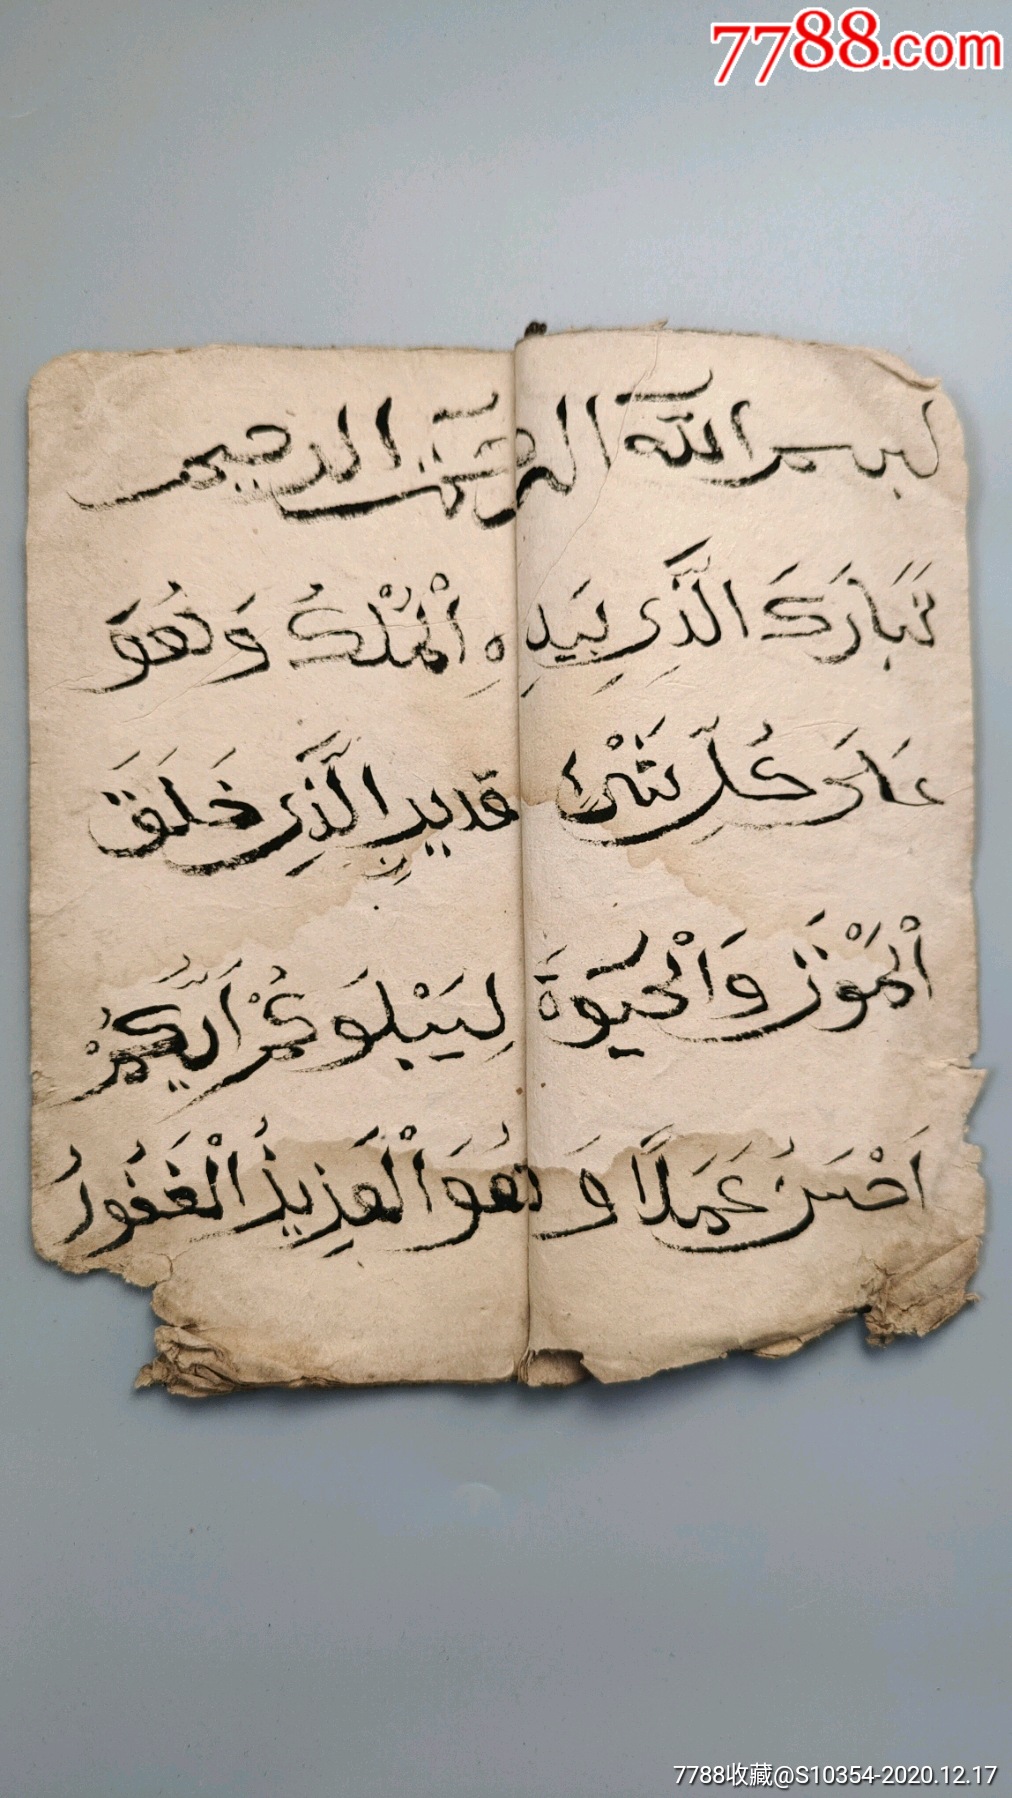 7788.com
بسم الله الرحمن الرحيم
تَبَارَكَ الَّذِى بِيَدِهِ الْمُلْكُ وَهُوَ
عَلَى كُلِّ شَىْءٍ قديرٍ الَّذِى خَلَقَ
الْمَوْتَ وَالْحَيَوةَ لِيَبْلُوَكُمْ اَيُّكُمْ
اَحْسَنُ عَمَلًا وَهُوَ الْعَزِيزُ الْغَفُورُ
7788收藏@S10354-2020.12.17